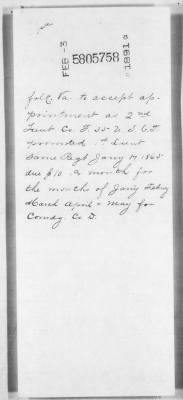 FEB -3
5805758
1891
folk, Va. to accept ap-
pointment as 2nd
Lieut Co. F. 35 U.S.C.T.
promoted 1st Lieut
Same Regt Jany 17 1865
due $10 a month for
the months of Jany Febry
March April & May for
Comdg. Co D.